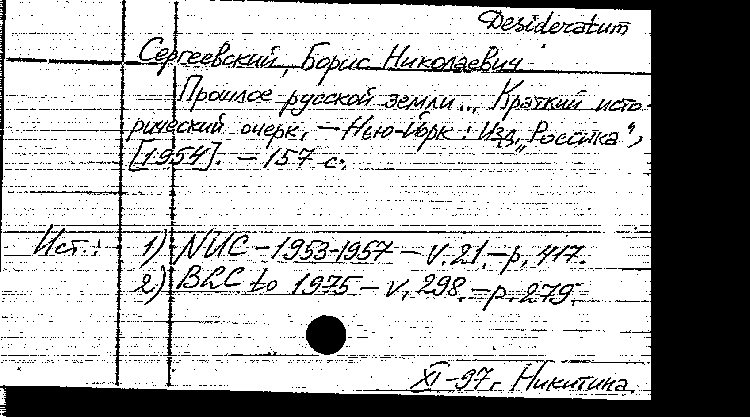 Desideratum
Сергеевский, Борис Николаевич
Прошлое русской земли... Краткий исто-
рический очерк. – Нью-Йорк: Изд. „Россика“,
[1954]. – 157 с.
Ист.: 1) NUC – 1953-1957 – v. 21. – p. 417.
2) BLC to 1975 – v. 298. – p. 279.
XI-97г. Никитина.